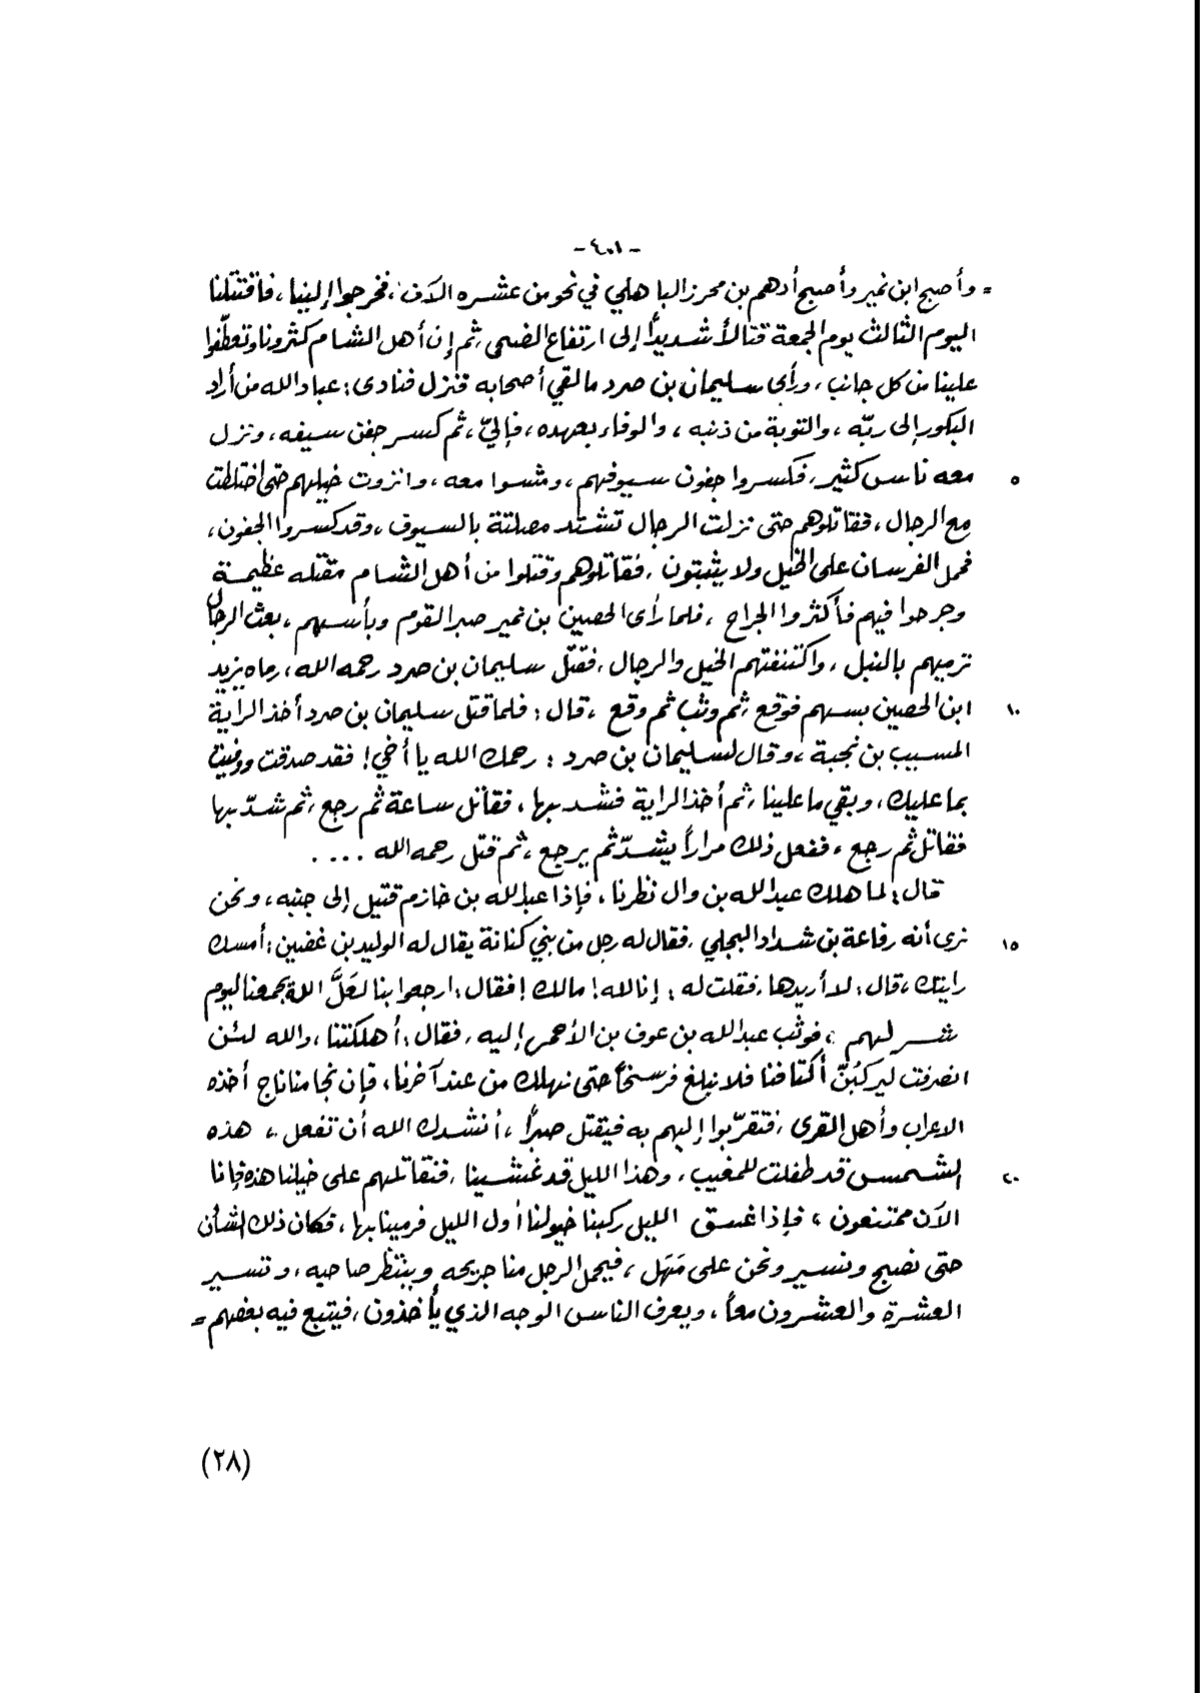 - ٤٠١ -
= وأصبح ابن نمير وأصبح أدهم بن محرز الباهلي في نحو من عشره الآف، فخرجوا إلينا، فاقتتلنا
اليوم الثالث يوم الجمعة قتالاً شديداً إلى ارتفاع الضحى، ثم إن أهل الشام كثرونا وتعطّفوا
علينا من كل جانب، ورأى سليمان بن صرد ما لقي أصحابه فنزل فنادى: عباد الله من أراد
البكور إلى ربّه، والتوبة من ذنبه، والوفاء بعهده، فإليّ، ثم كسر جفن سيفه، ونزل
معه ناس كثير، فكسروا جفون سيوفهم، ومشوا معه، وانزوت خيلهم حتى اختلطت ٥
مع الرجال، فقاتلوهم حتى نزلت الرجال تشتد مصلتة بالسيوف، وقد كسروا الجفون،
فحمل الفرسان على الخيل ولا يثبتون، فقاتلوهم وقتلوا من أهل الشام مقتله عظيمة
وجرحوا فيهم فأكثروا الجراح، فلما رأى الحصين بن نمير صبر القوم وبأسهم، بعث الرجال
ترميهم بالنبل، واكتنفتهم الخيل والرجال، فقتل سليمان بن صرد رحمه الله، رماه يزيد
ابن الحصين بسهم فوقع، ثم وثب ثم وقع، قال: فلما قتل سليمان بن صرد أخذ الراية ١٠
المسيب بن نجبة، وقال لسليمان بن صرد: رحمك الله يا أخي! فقد صدقت ووفيت
بما عليك، وبقي ما علينا، ثم أخذ الراية فشد بها، فقاتل ساعة ثم رجع، ثم شدّ بها
فقاتل ثم رجع، ففعل ذلك مراراً يشدّ ثم يرجع، ثم قتل رحمه الله ....
قال: لما هلك عبد الله بن وال نظرنا، فإذا عبد الله بن خازم قتيل إلى جنبه، ونحن
نرى أنه رفاعة بن شداد البجلي، فقال له رجل من بني كنانة يقال له الوليد بن غضين: أمسك ١٥
رايتك، قال: لا أريدها، فقلت له: إنا لله! مالك! فقال: ارجعوا بنا لعَلَّ الله يجمعنا ليوم
شر لهم، فوثب عبد الله بن عوف بن الأحمر إليه، فقال: أهلكتنا، والله لئن
انصرفت ليركبُنّ أكتافنا فلا نبلغ فرسخاً حتى نهلك من عند آخرنا، فإن نجا منا ناج أخذه
الاعراب وأهل القرى، فتقرّبوا إليهم به فيقتل صبراً، أنشدك الله أن تفعل، هذه
الشمس قد طفلت للمغيب، وهذا الليل قد غشينا، فنقاتلهم على خيلنا هذه فإنا ٢٠
الآن ممتنعون، فإذا غسق الليل ركبنا خيولنا أول الليل فرمينا بها، فكان ذلك الشأن
حتى نصبح ونسير ونحن على مَهَل، فيحمل الرجل منا جريحه وينتظر صاحبه، وتسير
العشرة والعشرون معاً، ويعرف الناس الوجه الذي يأخذون، فيتبع فيه بعضهم =
(٢٨)